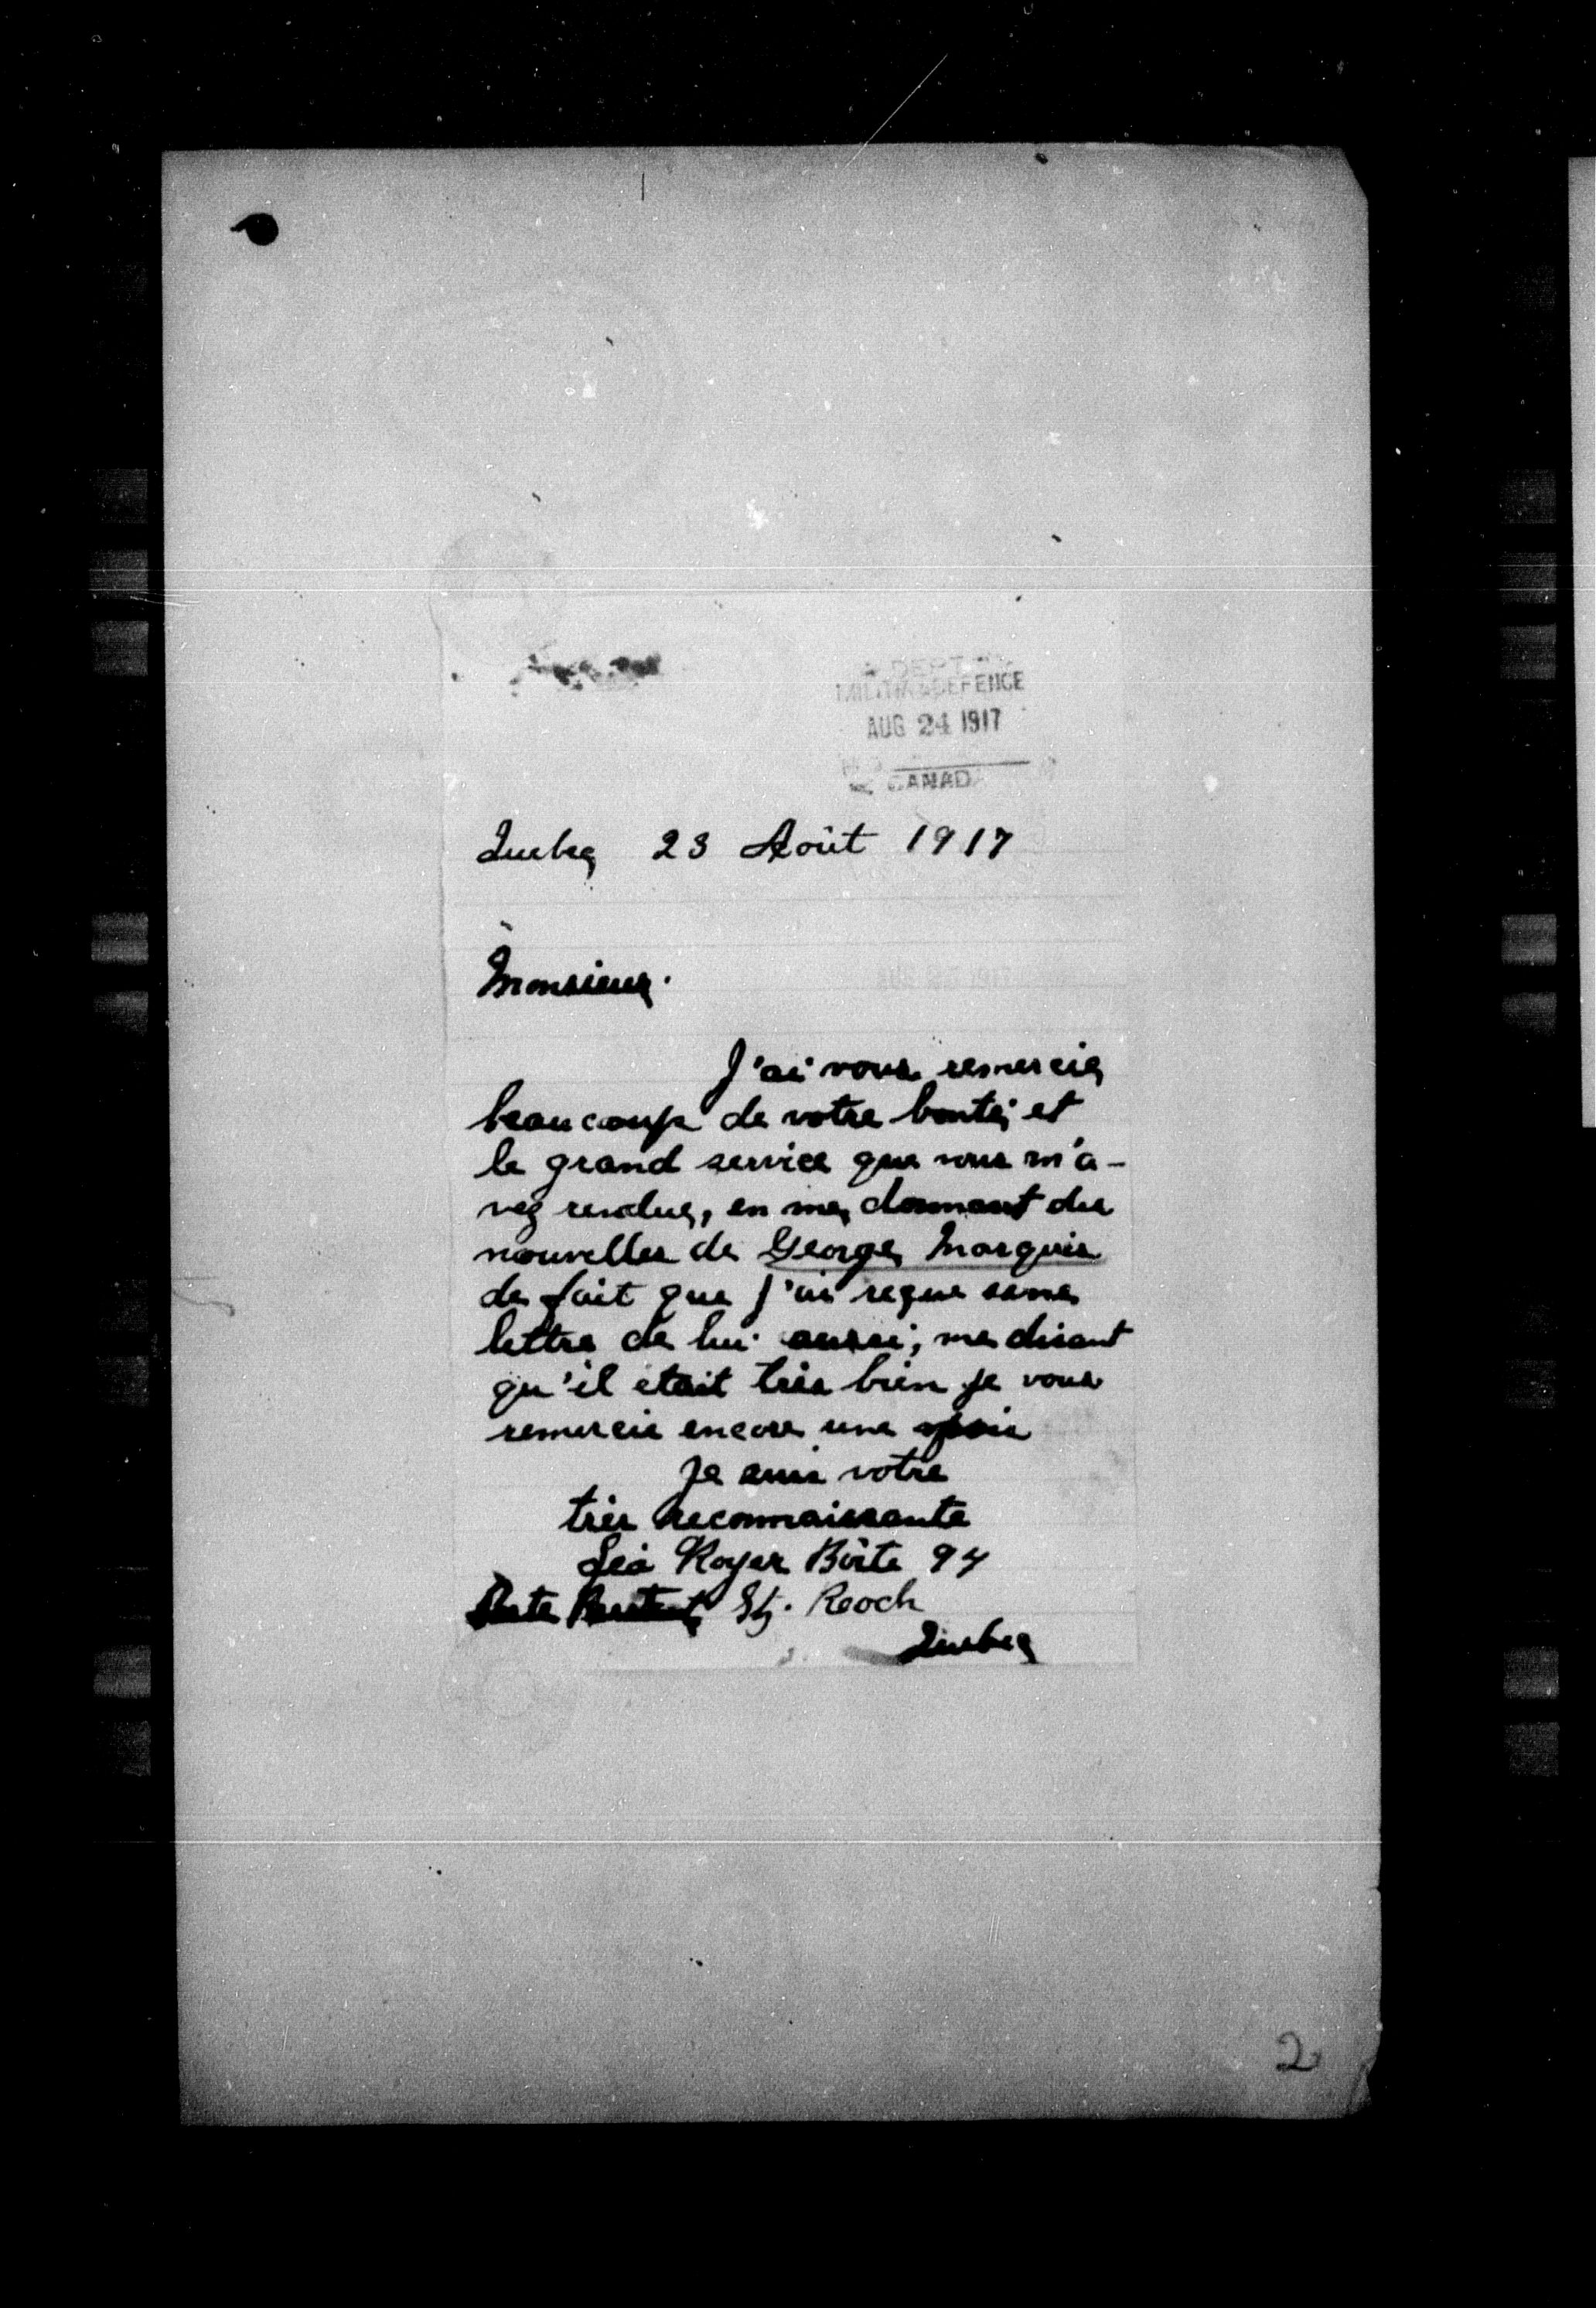 DEPT.
MILITIA & DEFENCE
AUG 24 1917
CANADA
Quebec 23 Août 1917
Monsieur.
J'ai vous remercie
beaucoup de votre bonté, et
le grand service que vous m'a-
vez rendue, en me donnant des
nouvelles de George Marquis
de fait que j'ai reçue une
lettre de lui aussi, me disant
qu'il était très bien je vous
remercie encore une fois
Je suis votre
très reconnaissante
Léa Royer Boîte 94
St. Roock
Quebec
2